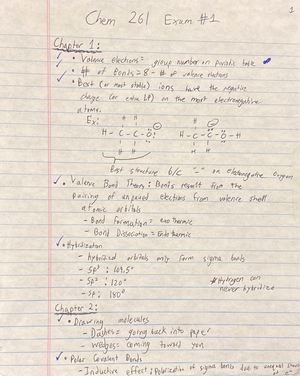 1
Chem 261 Exam #1
Chapter 1:
• Valence electrons = group number on periodic table
• # of Bonds = 8 - # of valence electrons
• Best (or most stable) ions have the negative
charge (or extra LP) on the most electronegative
atoms.
Ex:
H H
H - C - C - O
H H
H
H - C - C - O - H
H
Best structure b/c "-" on electronegative oxygen
• Valence Bond Theory: Bonds result from the
pairing of unpaired electrons from valence shell
atomic orbitals
- Bond Formation = exothermic
- Bond Dissociation = Endothermic
• Hybridization
- hybridized orbitals only form sigma bonds
- sp³: 109.5°
- sp²: 120° *Hydrogen can
- sp: 180° never hybridize
Chapter 2:
• Drawing molecules
- Dashes = going back into paper
- Wedges = coming toward you
• Polar Covalent Bonds
- Inductive effect: Polarization of sigma bonds due to unequal